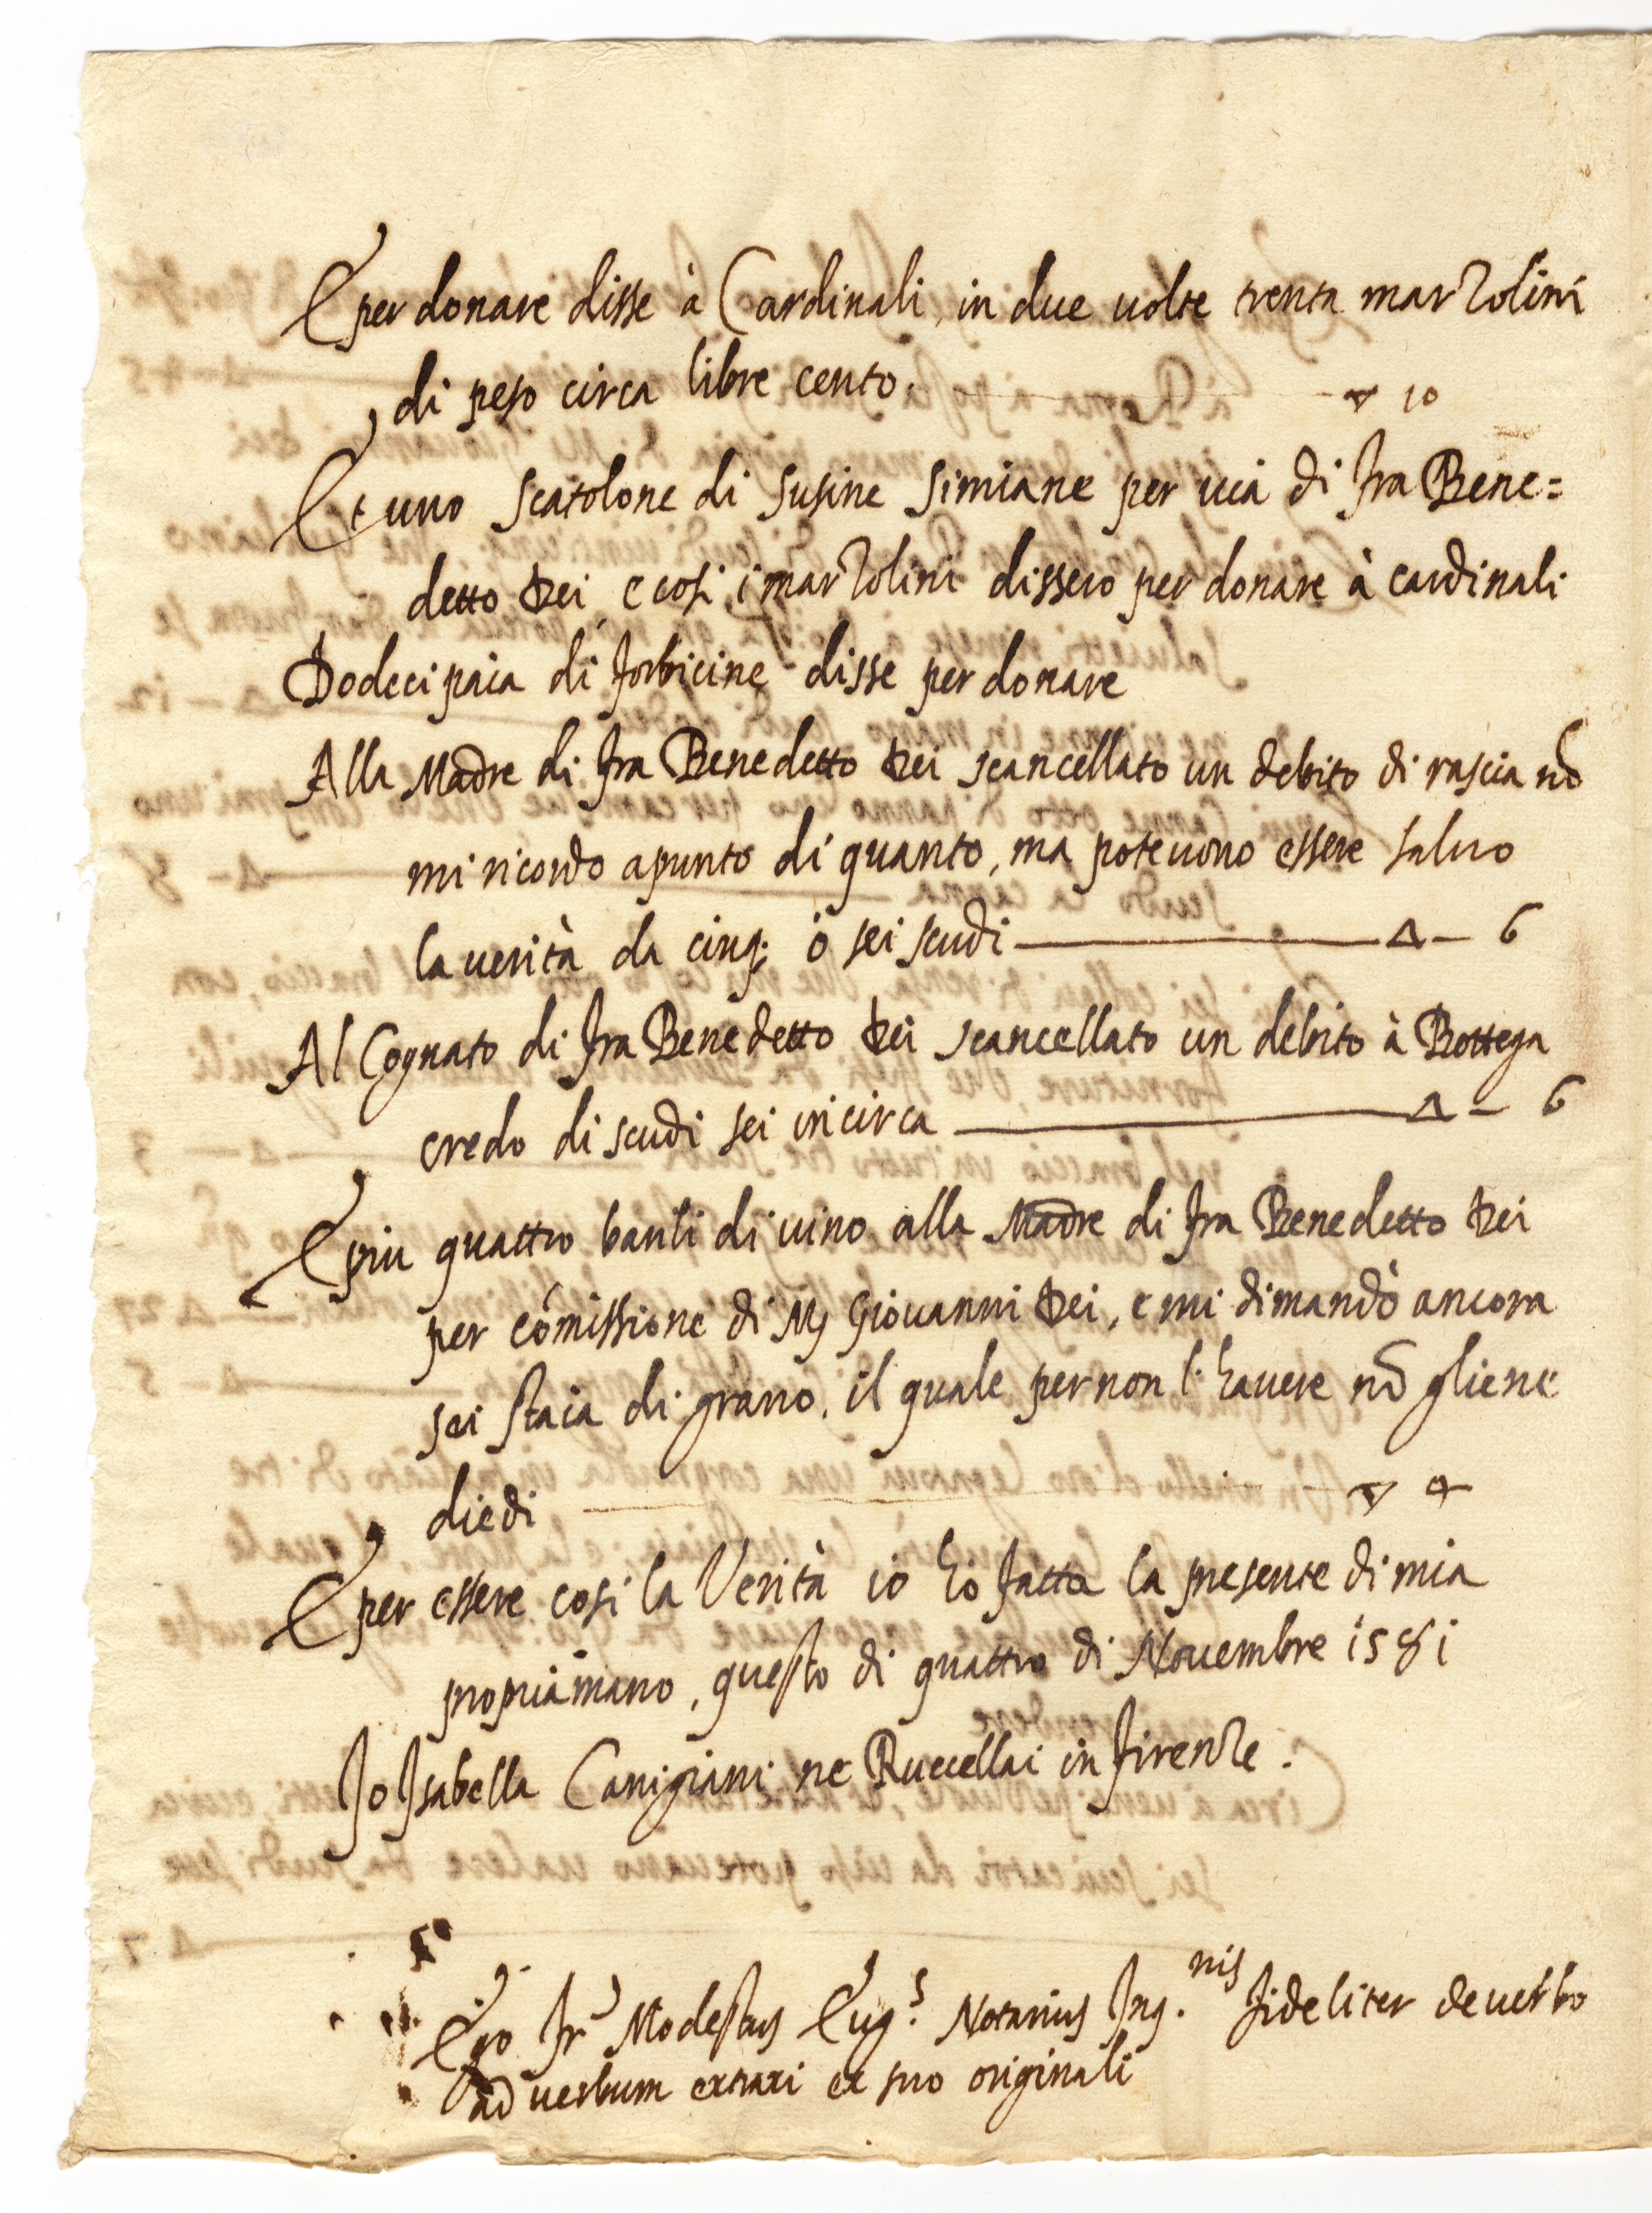 E per donare disse à Cardinali, in due uolte trenta marzolini
di peso circa libre cento. ∇ 10
Et uno scatolone di susine simiane per uia di fra Bene=
detto Dei, e cosi i marzolini dissero per donare à cardinali
Dodeci paia di forbicine disse per donare
Alla Madre di fra Benedetto Dei scancellato un debito di rascia nõ
mi ricordo apunto di quanto, ma poteuono essere saluo
la uerità da cinq; ò sei scudi ∆ — 6
Al Cognato di fra Benedetto Dei scancellato un debito à Bottega
credo di scudi sei in circa ∆ — 6
E piu quattro barili di uino alla Madre di fra Benedetto Dei
per cõmissione di Mſ Giouanni Dei, e mi dimandò ancora
sei staia di grano, il quale per non l'hauere nõ gliene
diedi ∇ 4
E per essere cosi la Verità io hò fatta la presente di mia
propria mano, questo di quattro di Nouembre 1581
Io Isabella Canigiani ne Ruccellai in firenze.
Ego fr Modestus Eug.s Notarius Inq.nis fideliter de uerbo
ad uerbum extraxi ex suo originali